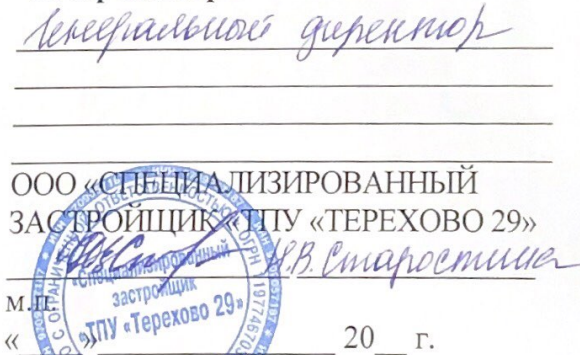 Генеральный директор
ООО «СПЕЦИАЛИЗИРОВАННЫЙ
ЗАСТРОЙЩИК «ТПУ «ТЕРЕХОВО 29»
Н.В. Старостина
М.П.
« » 20 г.
«Специализированный
застройщик
«ТПУ «Терехово 29»